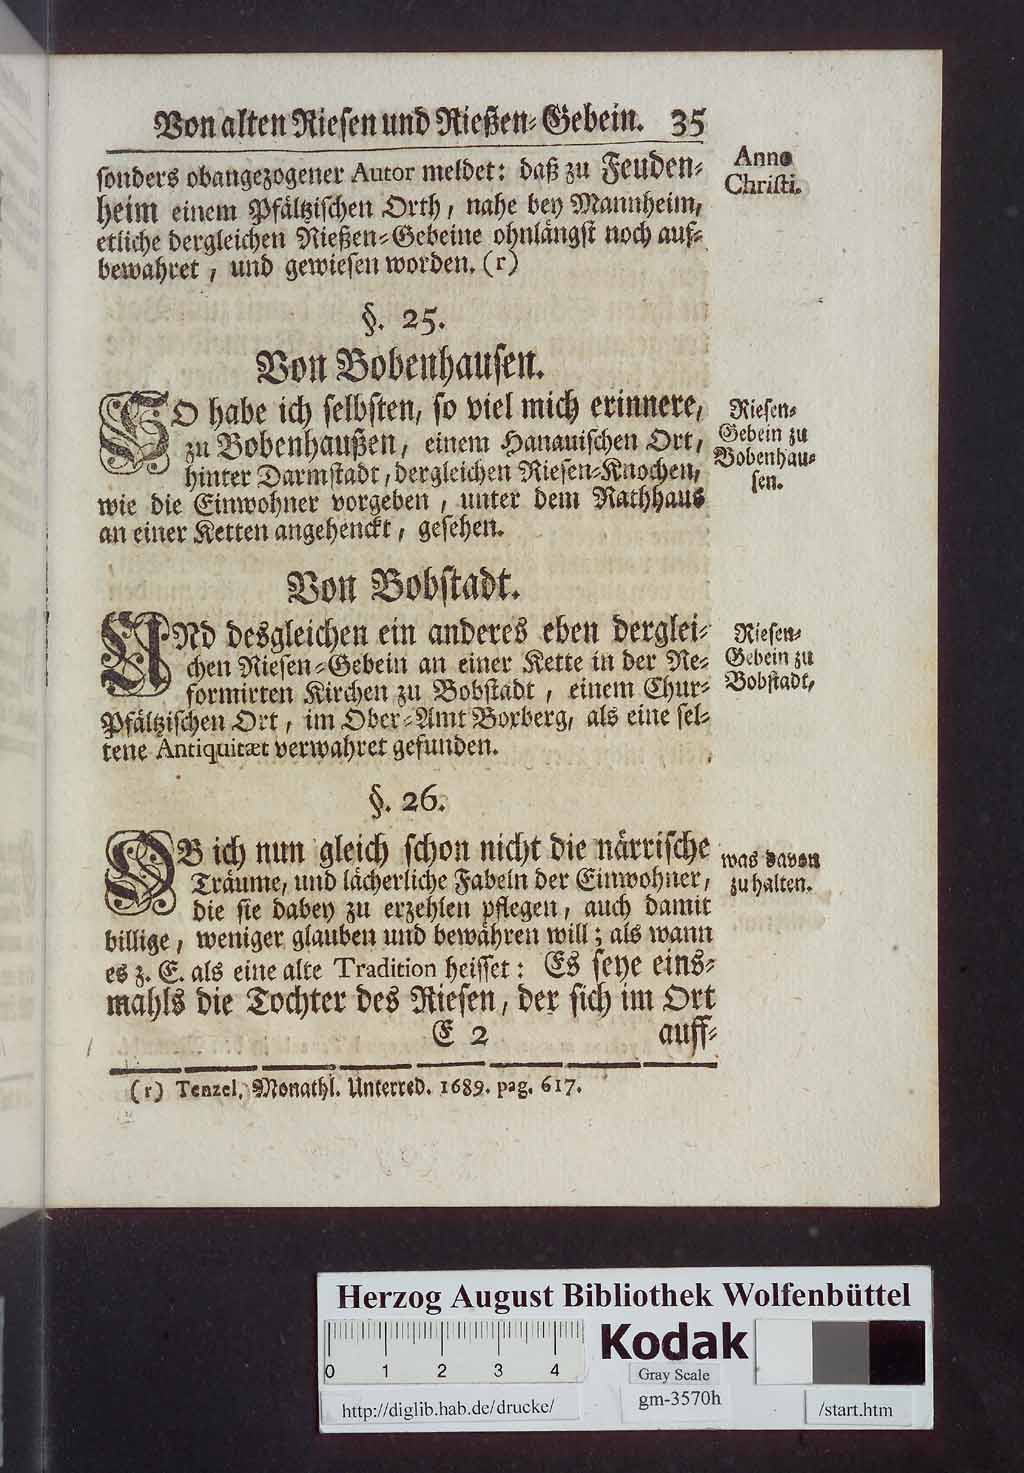 Von alten Riesen und Rießen-Gebein. 35
Anno
Christi.
sonders obangezogener Autor meldet: daß zu Feuden-
heim einem Pfältzischen Orth, nahe bey Mannheim,
etliche dergleichen Rießen-Gebeine ohnlängst noch auf-
bewahret, und gewiesen worden. (r)
§. 25.
Von Bobenhausen.
SO habe ich selbsten, so viel mich erinnere,
zu Bobenhaußen, einem Hanauischen Ort,
hinter Darmstadt, dergleichen Riesen-Knochen,
wie die Einwohner vorgeben, unter dem Rathhaus
an einer Ketten angehenckt, gesehen.
Riesen-
Gebein zu
Bobenhau-
sen.
Von Bobstadt.
UNd desgleichen ein anderes eben derglei-
chen Riesen-Gebein an einer Kette in der Re-
formirten Kirchen zu Bobstadt, einem Chur-
Pfältzischen Ort, im Ober-Amt Boxberg, als eine sel-
tene Antiquitæt verwahret gefunden.
Riesen-
Gebein zu
Bobstadt,
§. 26.
OB ich nun gleich schon nicht die närrische
Träume, und lächerliche Fabeln der Einwohner,
die sie dabey zu erzehlen pflegen, auch damit
billige, weniger glauben und bewähren will; als wann
es z. E. als eine alte Tradition heisset: Es seye eins-
mahls die Tochter des Riesen, der sich im Ort
was davon
zu halten.
E 2 auff-
(r) Tenzel, Monathl. Unterred. 1689. pag. 617.
Herzog August Bibliothek Wolfenbüttel
0 1 2 3 4
Kodak
Gray Scale
http://diglib.hab.de/drucke/
gm-3570h
/start.htm